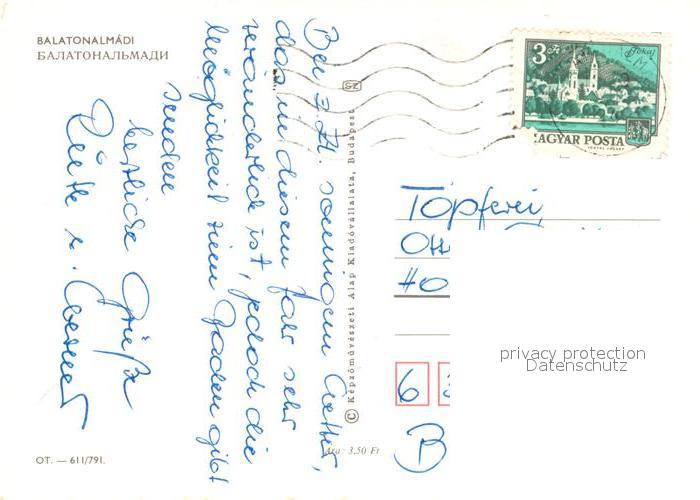 BALATONALMÁDI
БАЛАТОНАЛЬМАДИ
Bei z. Zt. sonnigem Wetter,
das in diesem Jahr sehr
veränderlich ist, jedoch die
Möglichkeit zum Baden gibt
senden
herzliche Grüße
u. Werner
OT. — 611/791.
© Képzőművészeti Alap Kiadóvállalata, Budapest
SZ
Ára: 3,50 Ft
3 Ft
Tokaj
MAGYAR POSTA
Töpferei
6
B
privacy protection
Datenschutz